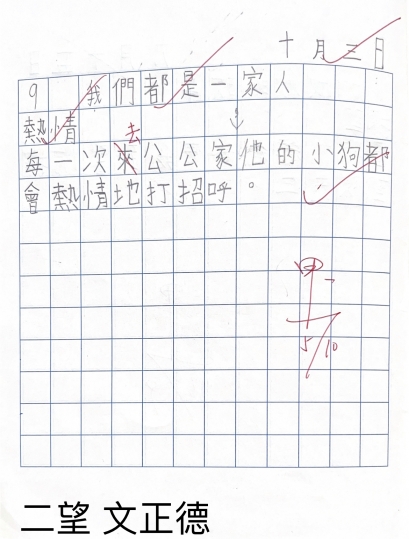 十月三日
9 我們都是一家人
熱情
去
每一次來公公家他的小狗都
會熱情地打招呼。
甲
5/10
二望 文正德